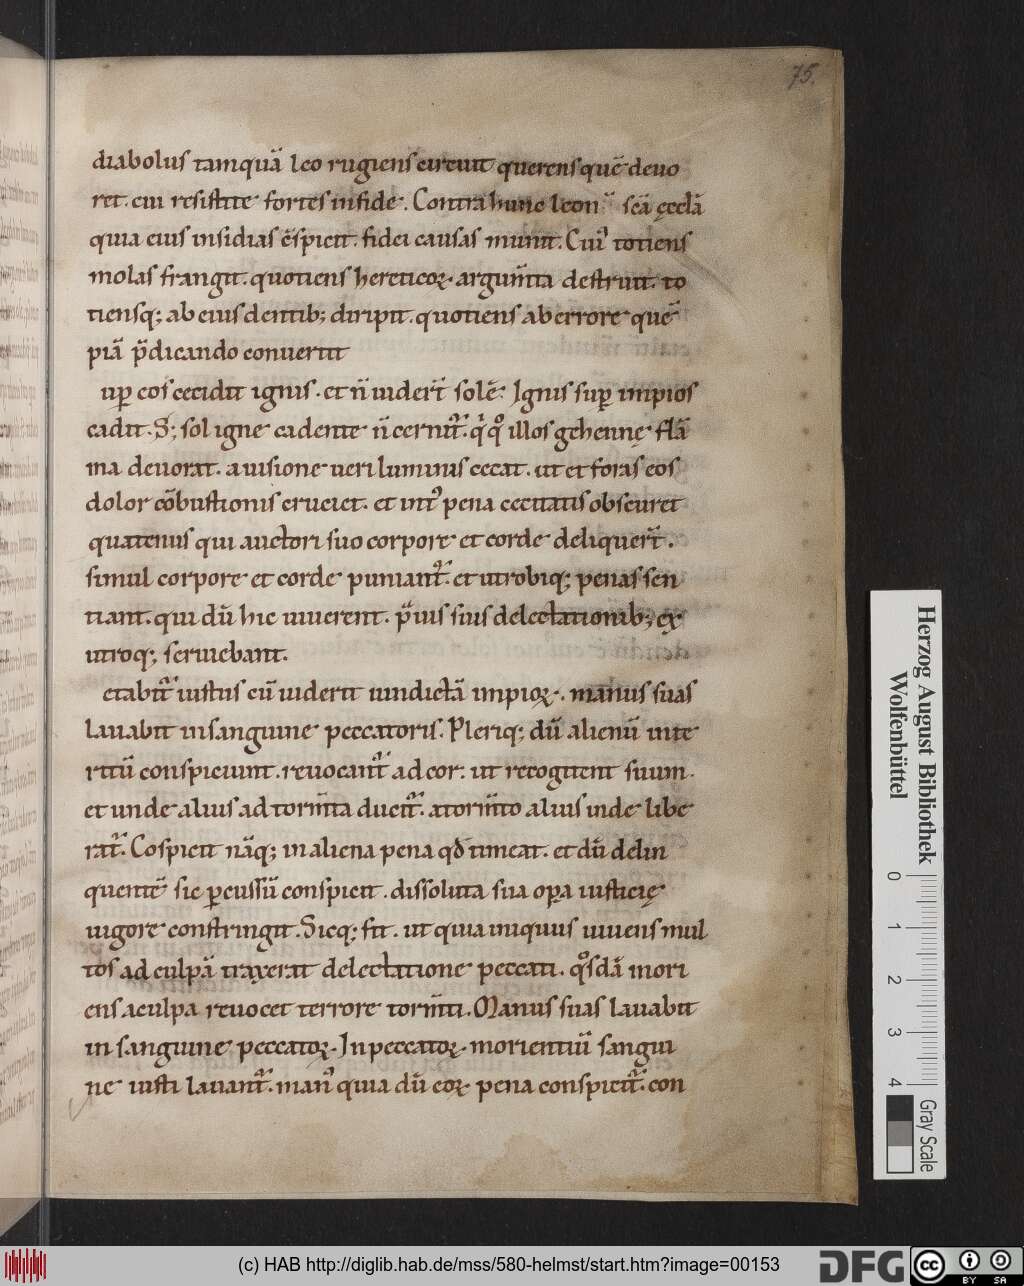 75.
diabolus tamquā leo rugiens circuit querens quē deuo
ret. cui resistite fortes in fide. Contra hunc leon scā ęcclā
quia eius insidias c̄spicit. fidei causas munit. Cui᾽ totiens
molas frangit. quotiens hereticoꝝ argum̄ta destruit. to
tiensq; ab eius dentib; diripit. quotiens ab errore quē
piā p̄dicando conuertit
uꝑ eos cecidit ignis. et n̄ uider̄t solē. Ignis suꝑ impios
cadit. S; sol igne cadente n̄ cernit᷑. q̇ qͦ illos gehennę flā
ma deuorat. a uisione ueri luminis cecat. ut et foras eos
dolor cōbustionis cruciet. et int᾽ pena cecitatis obscuret
quatenus qui auctori suo corpore et corde deliquer̄t.
simul corpore et corde puniant᷑. et utrobiq; penas sen
tiant. qui dū hic uiuerent. p̄uis suis delectationib; ex
utroq; seruiebant.
etabit᷑ iustus cū uiderit uindictā impioꝝ. manus suas
lauabit in sanguine peccatoris. Pleriq; dū alienū inte
ritū conspiciunt. reuocant᷑ ad cor. ut recogitent suum.
et unde alius ad torm̄ta ducit᷑. a torm̄to alius inde libe
rat᷑. Cospicit nāq; in aliena pena qđ timeat. et dū delin
quentē sic ꝑcussū conspicit. dissoluta sua oꝑa iusticię
uigore constringit. Sicq; fit. ut quia iniquus uiuens mul
tos ad culpā traxerat delectatione peccati. qͦsdā mori
ens a culpa reuocet terrore torm̄ti. Manus suas lauabit
in sanguine peccatoꝝ. In peccatoꝝ morientiū sangui
ne iusti lauant᷑. man᾽ quia dū eoꝝ pena conspicit᷑. con
Herzog August Bibliothek
Wolfenbüttel
0
1
2
3
4
Gray Scale
(c) HAB http://diglib.hab.de/mss/580-helmst/start.htm?image=00153
DFG
cc
BY SA